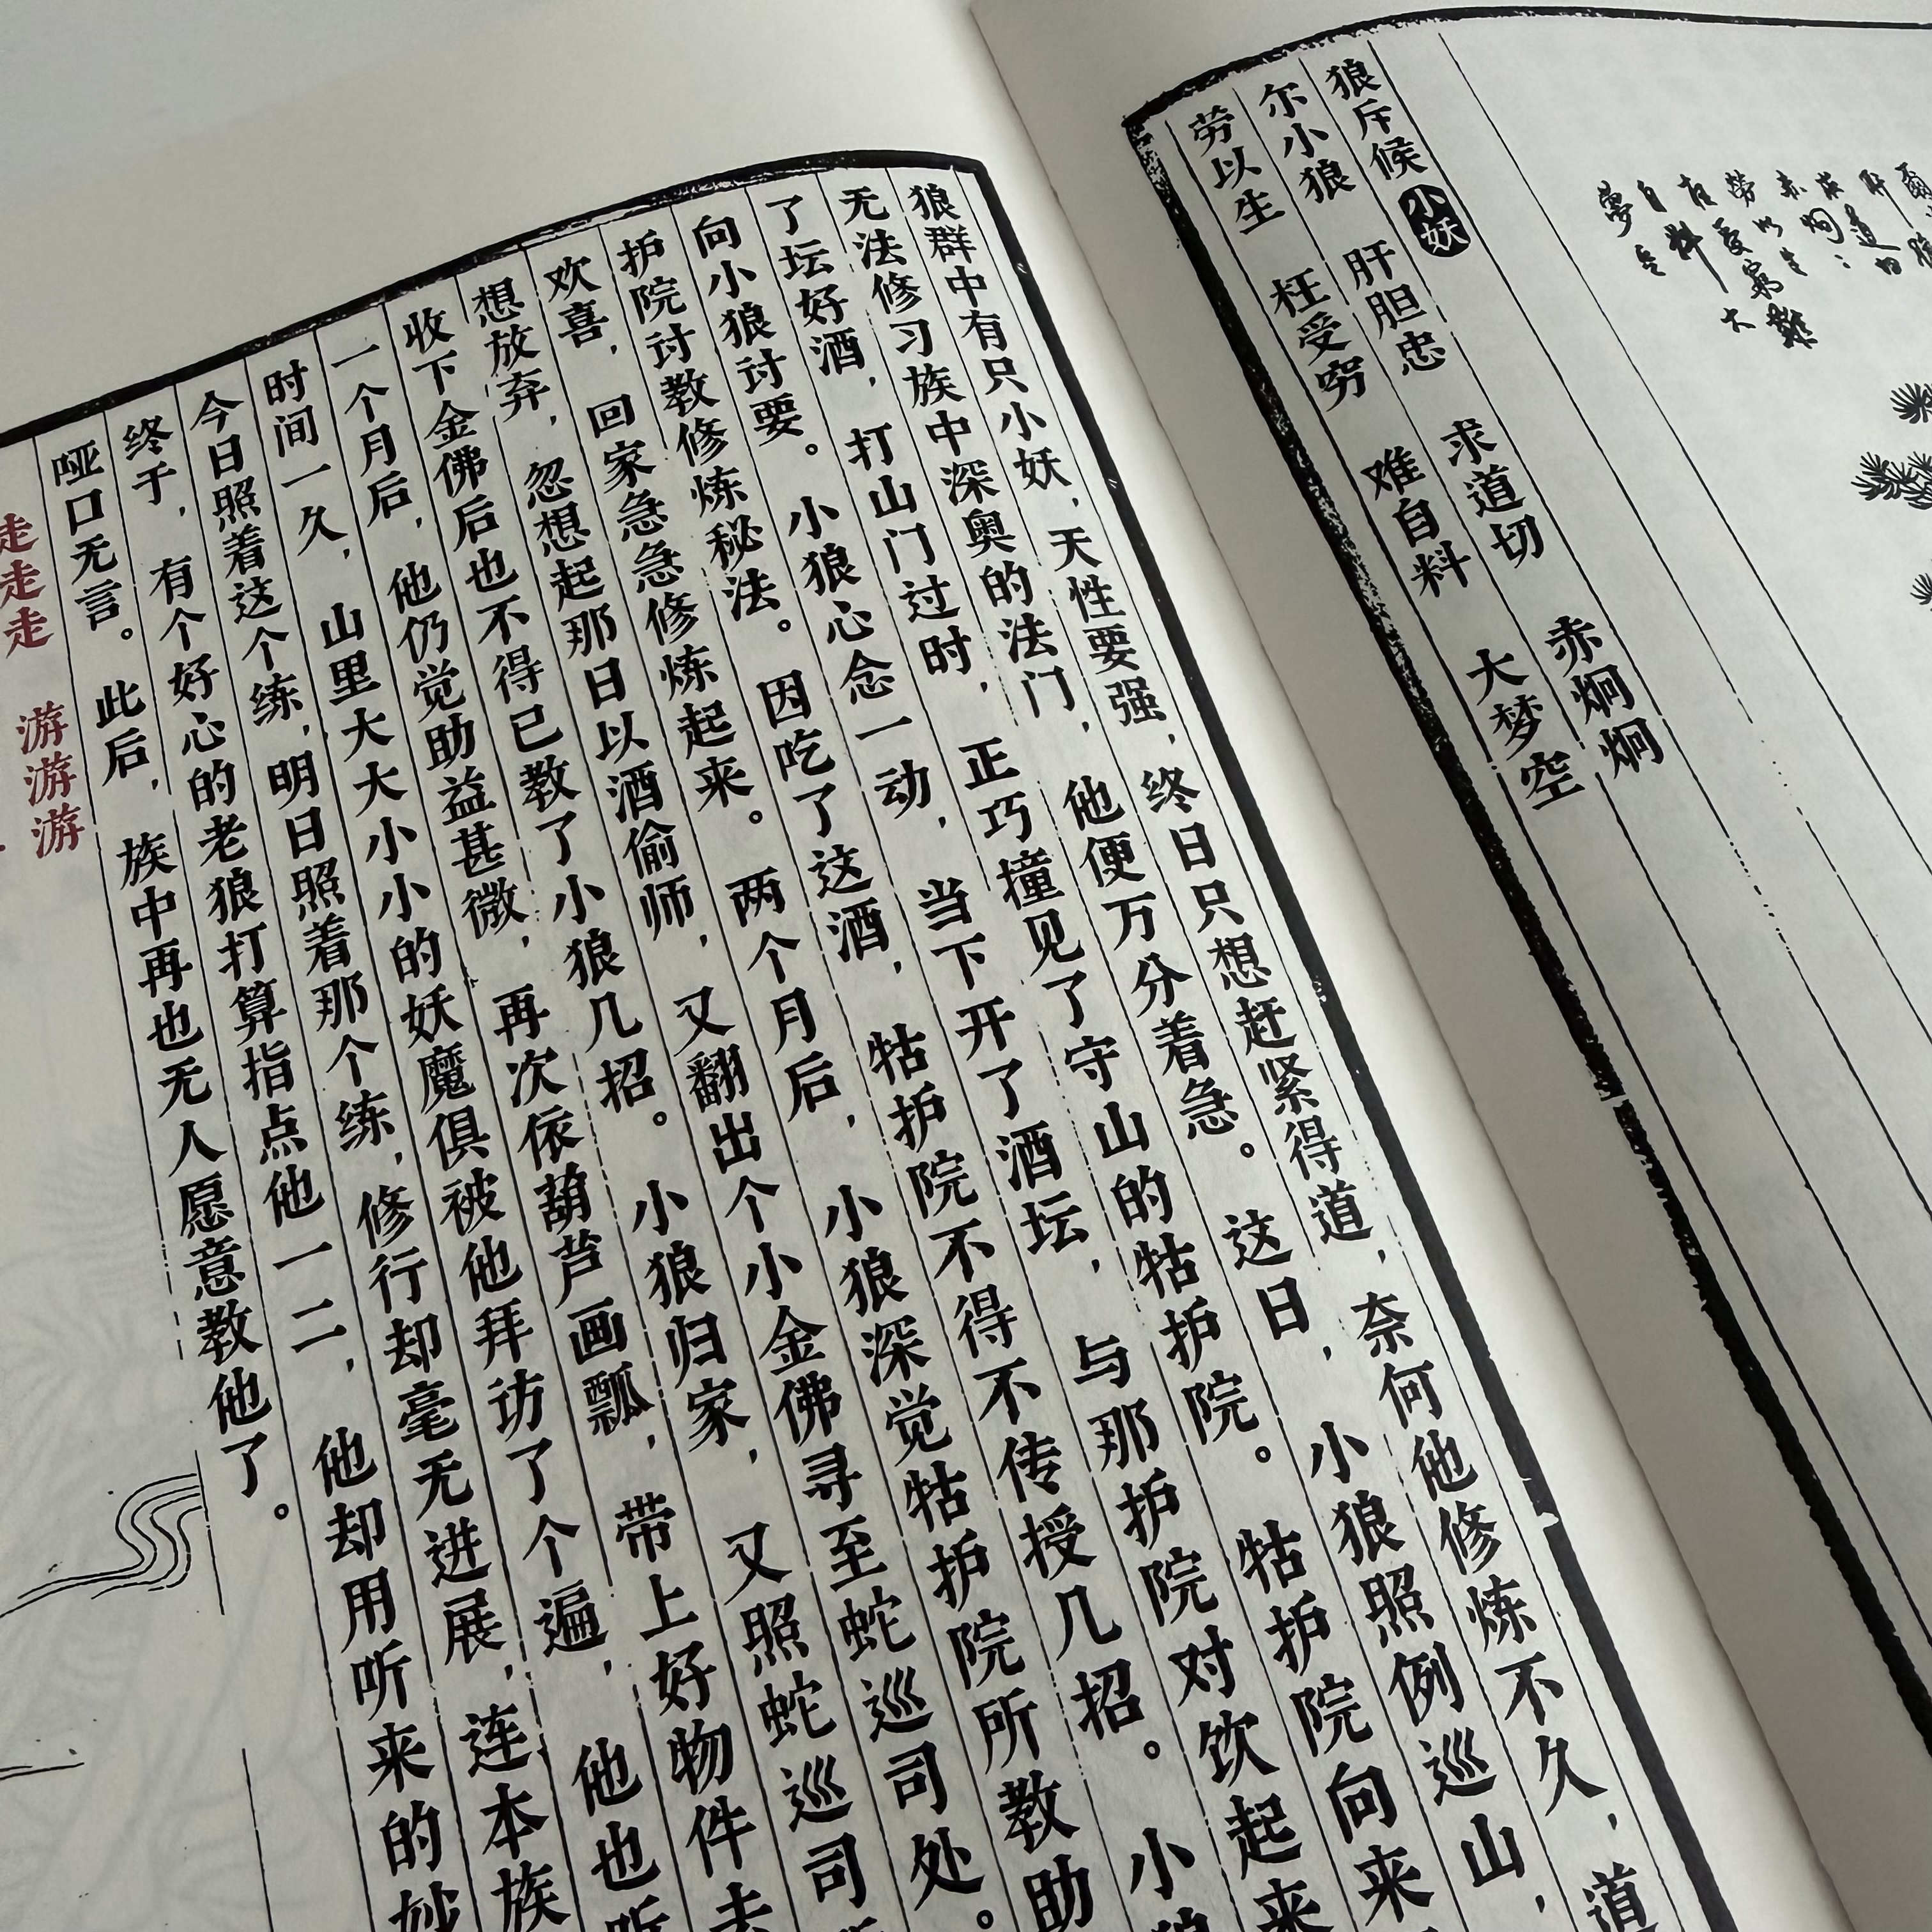 勞以生 難
枉受窮 大
自料
夢空
狼斥候 小妖
尔小狼 肝胆忠 求道切 赤炯炯
劳以生 枉受穷 难自料 大梦空
狼群中有只小妖，天性要强，终日只想赶紧得道，奈何他修炼不久，道
无法修习族中深奥的法门，他便万分着急。这日，小狼照例巡山，
了坛好酒，打山门过时，正巧撞见了守山的牯护院。牯护院向来
向小狼讨要。小狼心念一动，当下开了酒坛，与那护院对饮起来
护院讨教修炼秘法。因吃了这酒，牯护院不得不传授几招。小狼
欢喜，回家急急修炼起来。两个月后，小狼深觉牯护院所教助
想放弃，忽想起那日以酒偷师，又翻出个小金佛寻至蛇巡司处。
收下金佛后也不得已教了小狼几招。小狼归家，又照蛇巡司
一个月后，他仍觉助益甚微，再次依葫芦画瓢，带上好物件去
时间一久，山里大大小小的妖魔俱被他拜访了个遍，他也听
今日照着这个练，明日照着那个练，修行却毫无进展，连本族
终于，有个好心的老狼打算指点他一二，他却用听来的妙
哑口无言。此后，族中再也无人愿意教他了。
走走走 游游游